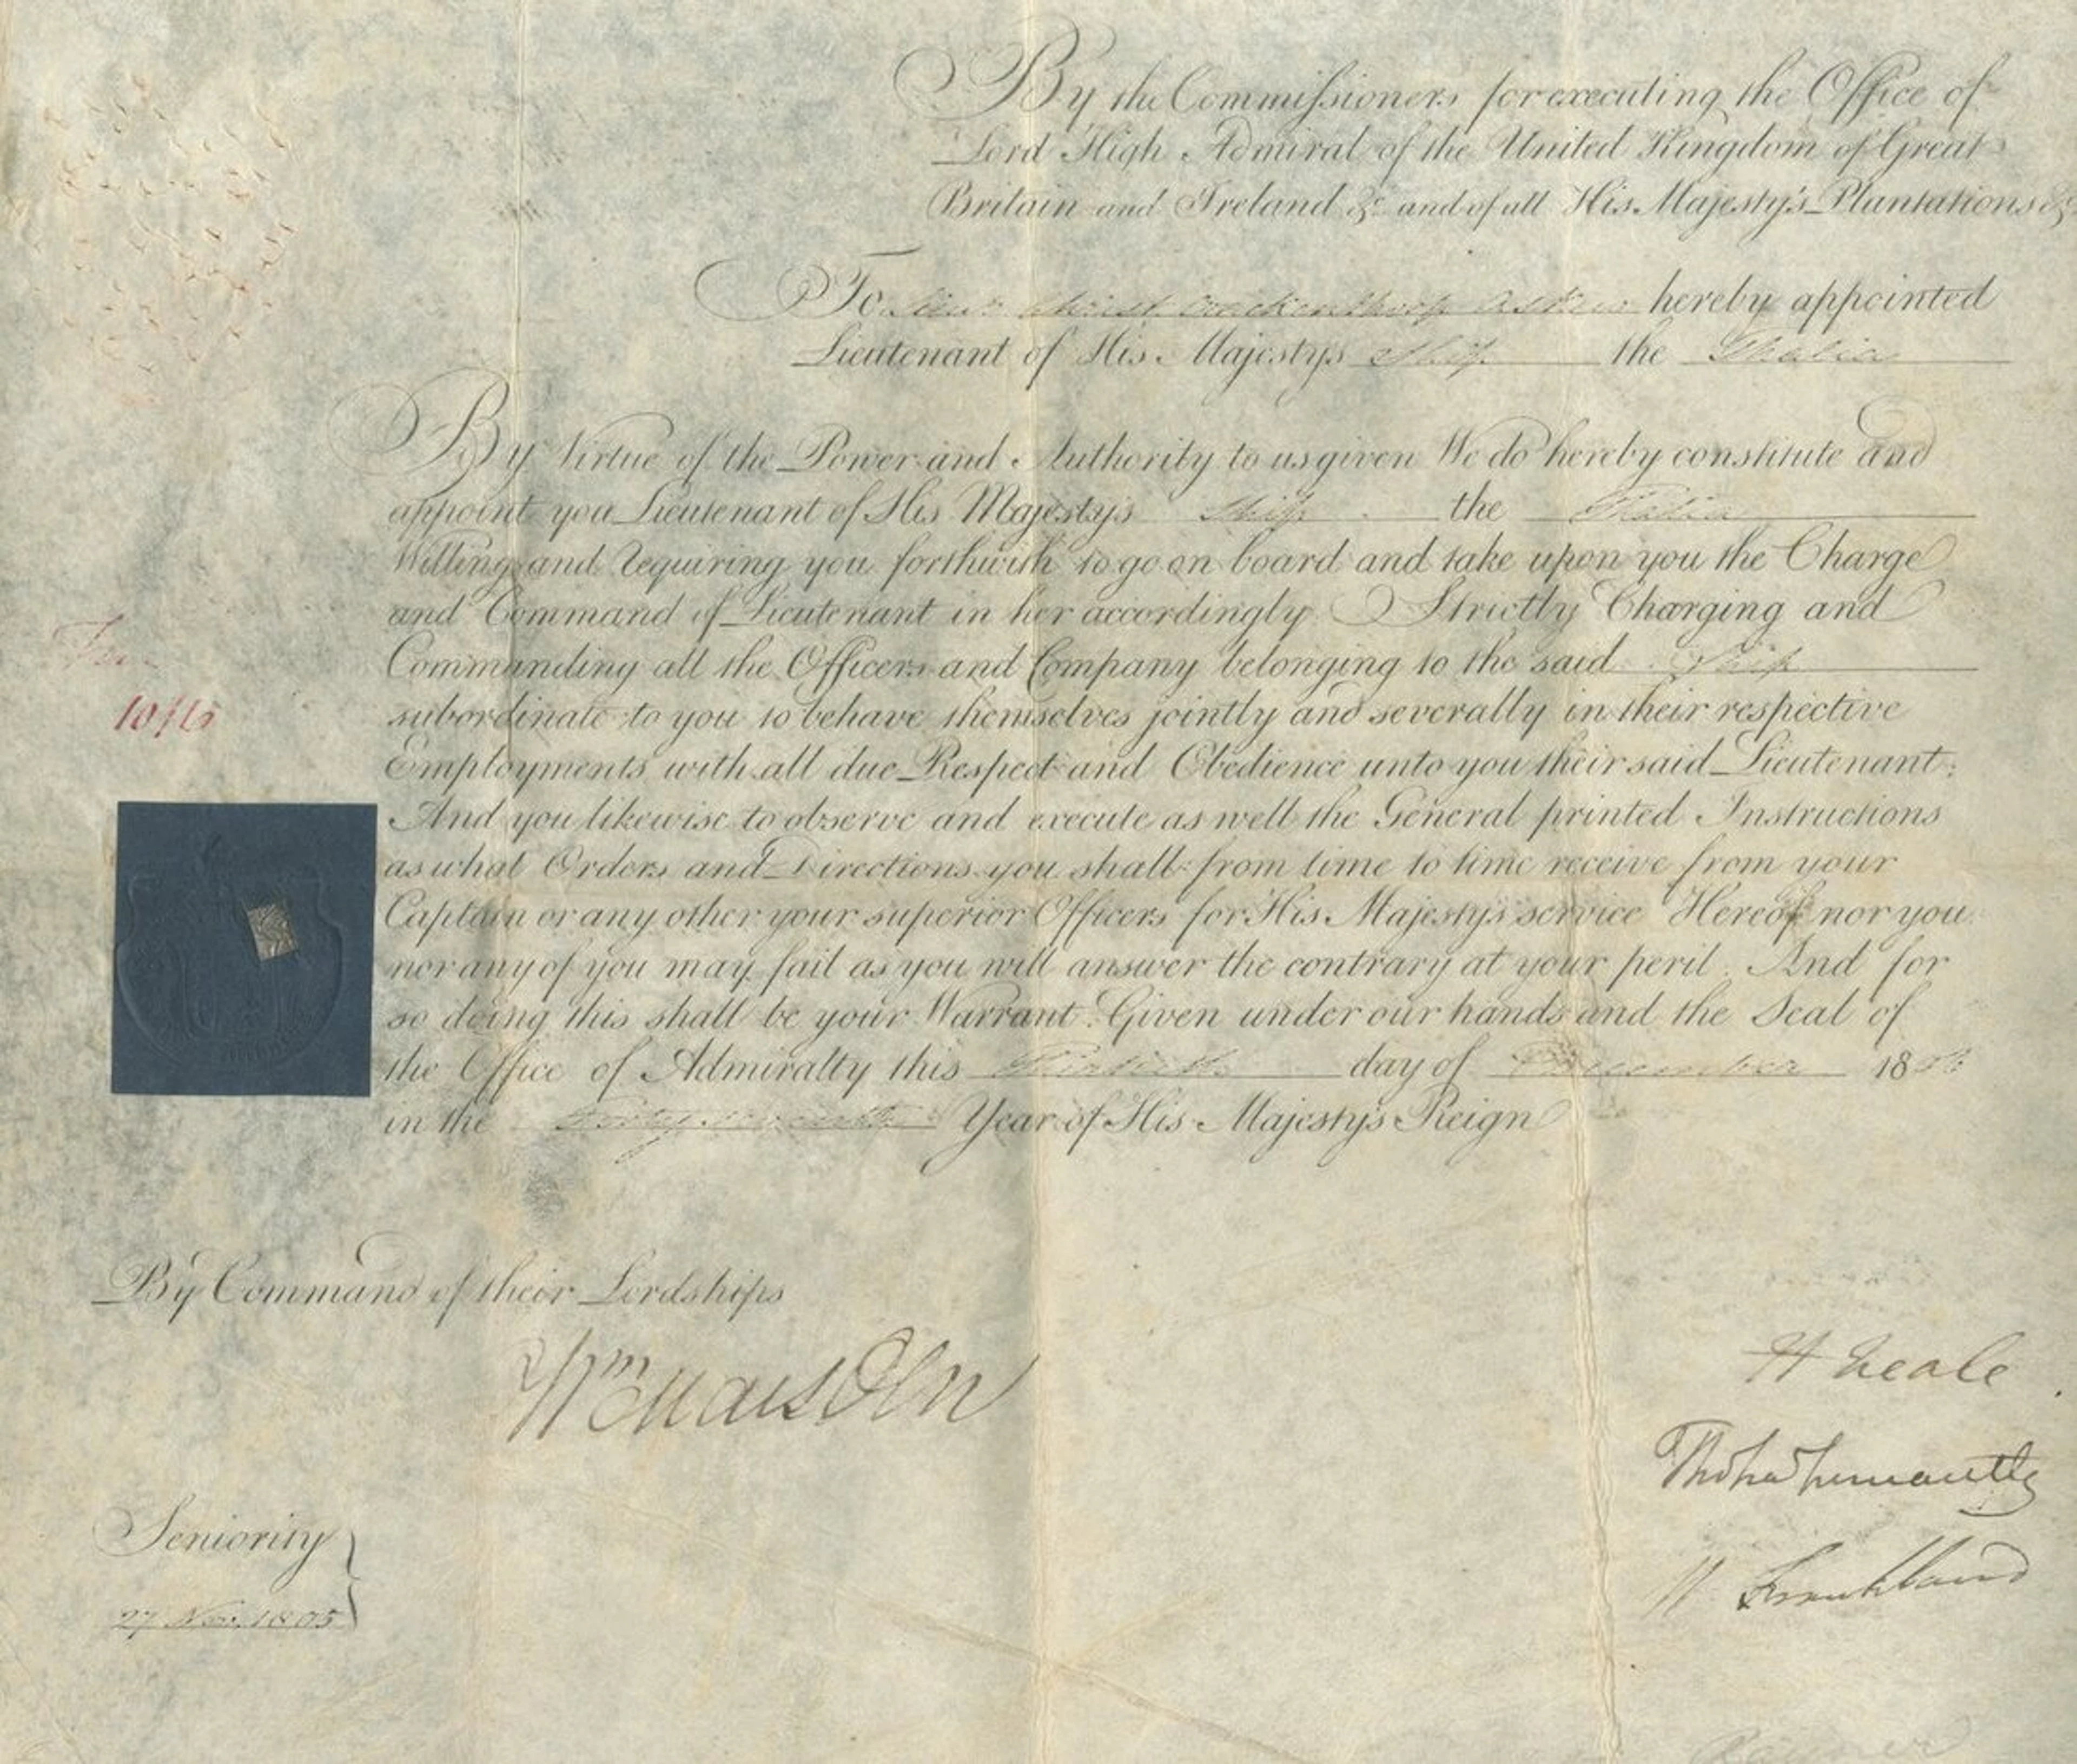 By the Commissioners for executing the Office of
Lord High Admiral of the United Kingdom of Great
Britain and Ireland &c and of all His Majesty's Plantations &c
To Lieut. Christ. Crackenthorp Askew hereby appointed
Lieutenant of His Majestys Ship the Thalia
By Virtue of the Power and Authority to us given We do hereby constitute and
appoint you Lieutenant of His Majestys Ship the Thalia
Willing and requiring you forthwith to go on board and take upon you the Charge
and Command of Lieutenant in her accordingly. Strictly Charging and
Commanding all the Officers and Company belonging to the said Ship
subordinate to you to behave themselves jointly and severally in their respective
Employments with all due Respect and Obedience unto you their said Lieutenant;
10/6
And you likewise to observe and execute as well the General printed Instructions
as what Orders and Directions you shall from time to time receive from your
Captain or any other your superior Officers for His Majesty's service Hereof nor you
nor any of you may fail as you will answer the contrary at your peril. And for
so doing this shall be your Warrant. Given under our hands and the Seal of
the Office of Admiralty this Thirtieth day of December 18
in the Forty seventh Year of His Majesty's Reign
By Command of their Lordships
Wm Marsden
H Neale
W Frankland
Seniority
27 Nov. 1805